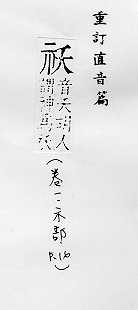 重訂直音篇
祆
音天胡人
謂神為祆
(卷一示部
P.16)